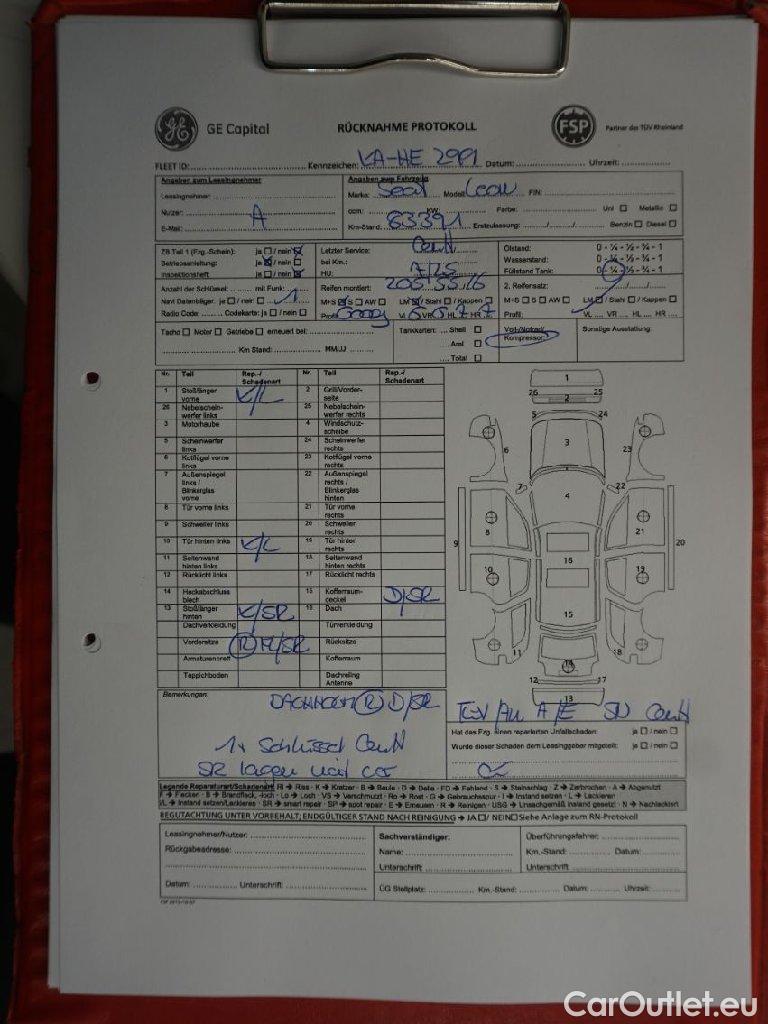 GE Capital
RÜCKNAHME PROTOKOLL
FSP
Partner der TÜV Rheinland
FLEET ID: Kennzeichen: KA-HE 2991 Datum: Uhrzeit:
Angaben zum Leasingnehmer
Leasingnehmer:
Nutzer: A
E-Mail:
Angaben zum Fahrzeug
Marke: Seat Modell: Leon FIN:
ccm: KW: Farbe: Uni Metallic
Km-Stand: 83391 Erstzulassung: Benzin Diesel
ZB Teil 1 (Frg.-Schein): ja / nein
Betriebsanleitung: ja / nein
Inspektionsheft ja / nein
Letzter Service:
bei Km.:
HU: 7/25
Ölstand: 0 - ¼ - ½ - ¾ - 1
Wasserstand: 0 - ¼ - ½ - ¾ - 1
Füllstand Tank: 0 - ¼ - ½ - ¾ - 1
Anzahl der Schlüssel: mit Funk: 1
Navi Datenträger: ja / nein
Radio Code: Codekarte: ja / nein
Reifen montiert: 205 55 16
M+S S AW LM / Stahl / Kappen
Profil: VL VR HL HR
2. Reifensatz:
M+S S AW LM / Stahl / Kappen
Profil: VL VR HL HR
Tacho Motor Getriebe erneuert bei:
Km Stand: MM/JJ
Tankkarten: Shell
Aral
Total
Kompressor:
Sonstige Ausstattung:
Nr. Teil Rep.-/Schadenart Nr. Teil Rep.-/Schadenart
1 Stoßfänger vorne K/L 2 Grill/Vorderseite
26 Nebelscheinwerfer links 25 Nebelscheinwerfer rechts
3 Motorhaube 4 Windschutzscheibe
5 Scheinwerfer links 24 Scheinwerfer rechts
6 Kotflügel vorne links 23 Kotflügel vorne rechts
7 Außenspiegel links / Blinkerglas vorne 22 Außenspiegel rechts / Blinkerglas hinten
8 Tür vorne links 21 Tür vorne rechts
9 Schweller links 20 Schweller rechts
10 Tür hinten links K/L Tür hinten rechts
11 Seitenwand hinten links Seitenwand hinten rechts
12 Rücklicht links 17 Rücklicht rechts
14 Heckabschlussblech 15 Kofferraumdeckel D/SR
13 Stoßfänger hinten K/SR Dach
Dachverkleidung Türverkleidung
Vordersitze Rücksitze
Armaturenbrett Kofferraum
Teppichboden Dachreling Antenne
Bemerkungen:
1x Schlüssel
Hat das Frg. einen reparierten Unfallschaden: ja / nein
Wurde dieser Schaden dem Leasinggeber mitgeteilt: ja / nein
Legende Reparaturart/Schadenart: RI → Riss - K → Kratzer - B → Beule - D → Delle - FD → Fehlend - S → Steinschlag - Z → Zerbrochen - A → Abgenutzt
F → Flecken - B → Brandfleck, -loch - Lo → Loch - VS → Verschmutzt - Ro → Rost - G → Gebrauchsspur - I → Instand setzen - L → Lackieren
I/L → Instand setzen/Lackieren - SR → smart repair - SP → spot repair - E → Erneuern - R → Reinigen - USG → Unsachgemäß instand gesetzt - N → Nachlackiert
BEGUTACHTUNG UNTER VORBEHALT; ENDGÜLTIGER STAND NACH REINIGUNG → JA / NEIN Siehe Anlage zum RN-Protokoll
Leasingnehmer/Nutzer:
Rückgabeadresse:
Datum: Unterschrift:
Sachverständiger:
Name:
Unterschrift
Überführungsfahrer:
Km.-Stand: Datum:
Unterschrift
CG Stellplatz: Km.-Stand: Datum: Uhrzeit:
CarOutlet.eu